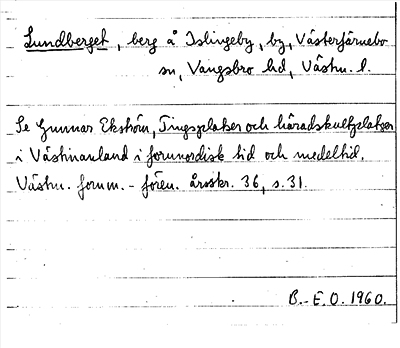 Lundberget, berg å Islingeby, by, Västerfärnebo
sn, Vangsbro hd, Västm. l.
Se Gunnar Ekström, Tingsplatser och häradskultplatser
i Västmanland i fornnordisk tid och medeltid.
Västm. fornm.-fören. årsskr. 36, s. 31.
B.-E. O. 1960.